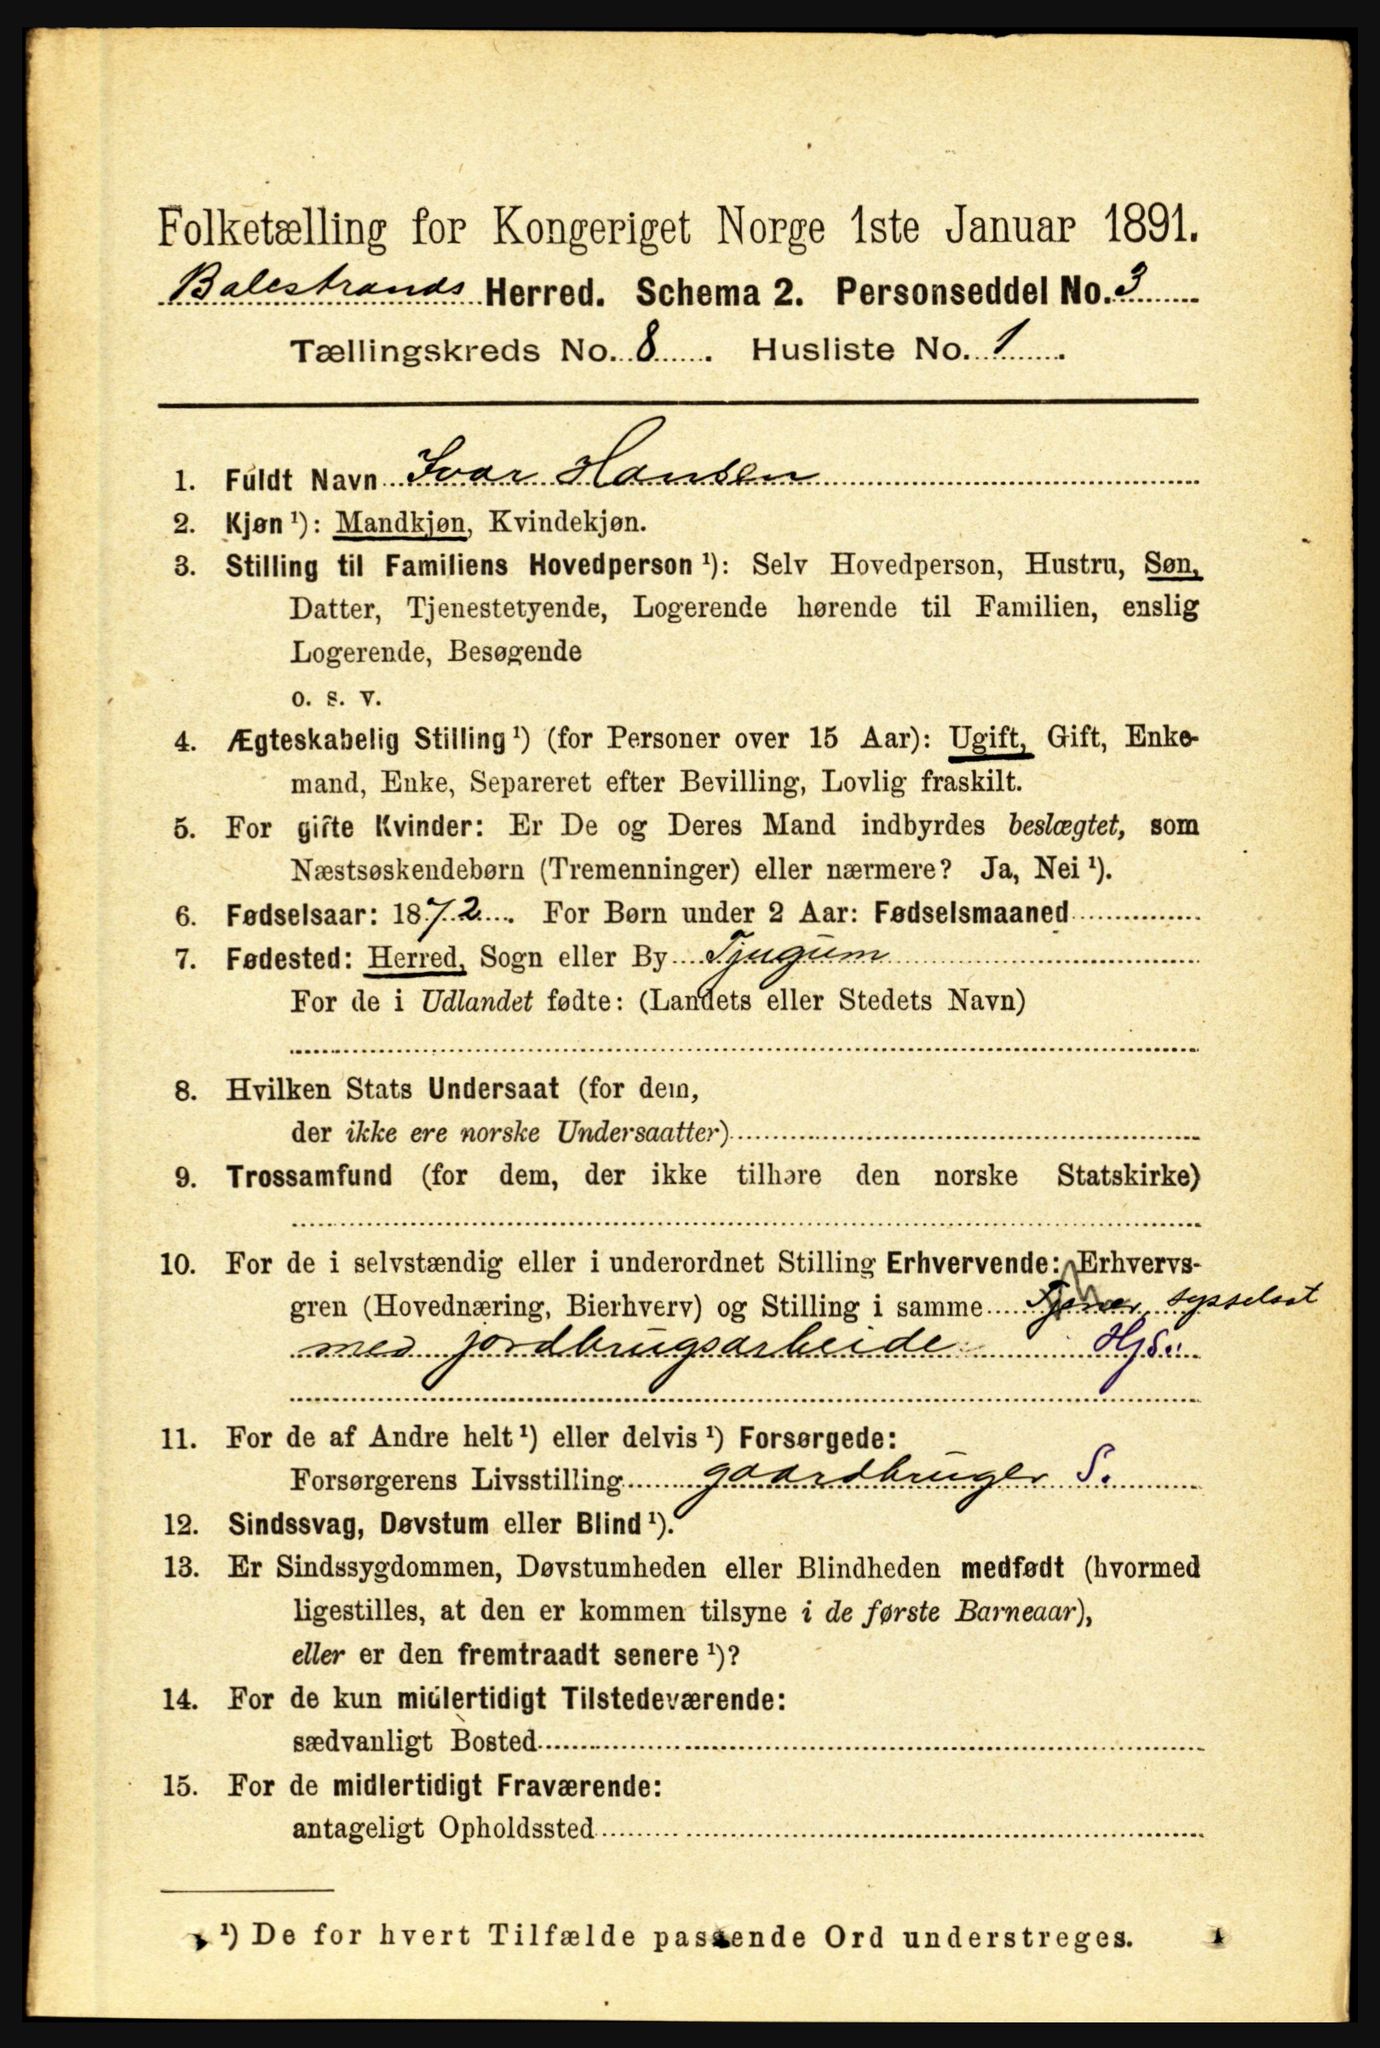 Folketælling for Kongeriget Norge 1ste Januar 1891.
Balestrands Herred. Schema 2. Personseddel No. 3
Tællingskreds No. 8. Husliste No. 1.
1. Fuldt Navn Ivar Hansen
2. Kjøn ¹): Mandkjøn, Kvindekjøn.
3. Stilling til Familiens Hovedperson ¹): Selv Hovedperson, Hustru, Søn,
Datter, Tjenestetyende, Logerende hørende til Familien, enslig
Logerende, Besøgende
o. s. v.
4. Ægteskabelig Stilling ¹) (for Personer over 15 Aar): Ugift, Gift, Enke-
mand, Enke, Separeret efter Bevilling, Lovlig fraskilt.
5. For gifte Kvinder: Er De og Deres Mand indbyrdes beslægtet, som
Næstsøskendebørn (Tremenninger) eller nærmere? Ja, Nei ¹).
6. Fødselsaar: 1872. For Børn under 2 Aar: Fødselsmaaned
7. Fødested: Herred, Sogn eller By Tjugum
For de i Udlandet fødte: (Landets eller Stedets Navn)
8. Hvilken Stats Undersaat (for dem,
der ikke ere norske Undersaatter)
9. Trossamfund (for dem, der ikke tilhøre den norske Statskirke)
10. For de i selvstændig eller i underordnet Stilling Erhvervende: Erhvervs-
gren (Hovednæring, Bierhverv) og Stilling i samme Tjener, sysselsat
med jordbrugsarbeide Hjs.
11. For de af Andre helt ¹) eller delvis ¹) Forsørgede:
Forsørgerens Livsstilling gaardbruger S.
12. Sindssvag, Døvstum eller Blind ¹).
13. Er Sindssygdommen, Døvstumheden eller Blindheden medfødt (hvormed
ligestilles, at den er kommen tilsyne i de første Barneaar),
eller er den fremtraadt senere ¹)?
14. For de kun midlertidigt Tilstedeværende:
sædvanligt Bosted
15. For de midlertidigt Fraværende:
antageligt Opholdssted
¹) De for hvert Tilfælde passende Ord understreges.